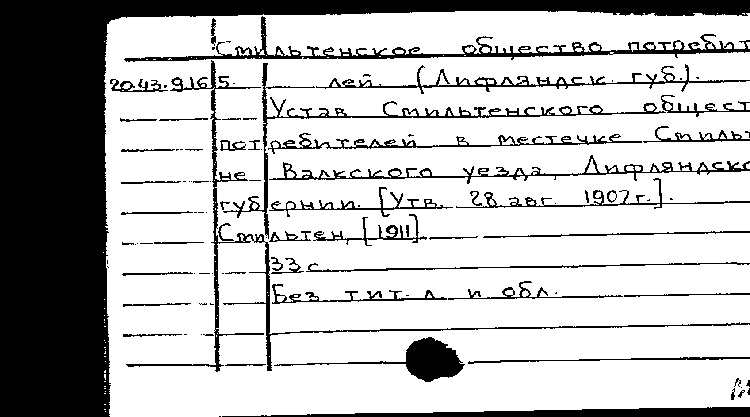 Смильтенское общество потребит
20.43.9.16 5. лей. (Лифляндск. губ.).
Устав Смильтенского общест
потребителей в местечке Смильт
не Валкского уезда, Лифляндско
губернии. [Утв. 28 авг. 1907 г.].
Смильтен, [1911].
33 с.
Без тит. л. и обл.